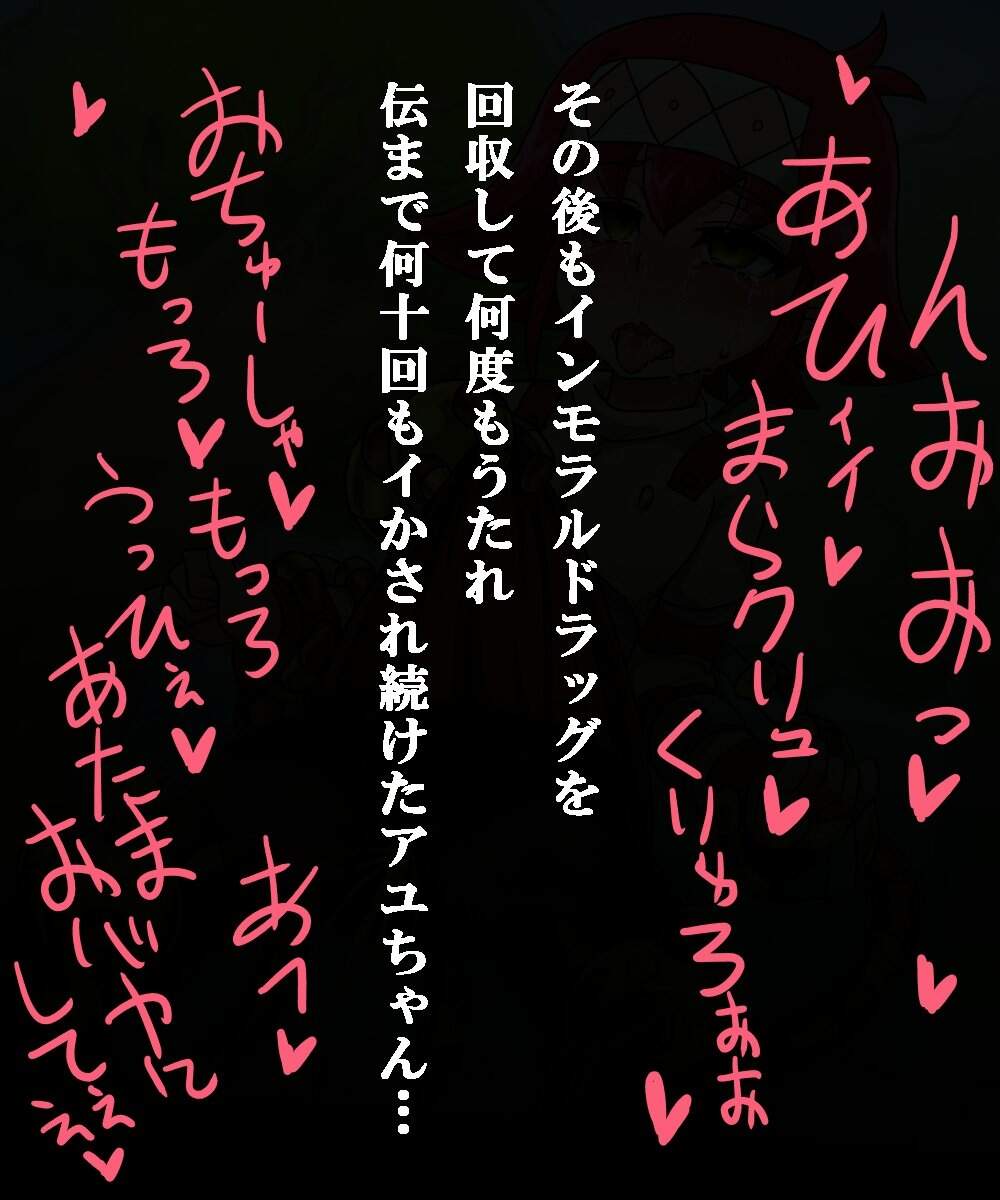 んおおっ♥
あひィイ♥
まらクリュ♥
くりゅろぉお♥
その後もインモラルドラッグを
回収して何度もうたれ
伝まで何十回もイかされ続けたアユちゃん…
おちゅーしゃ♥
もっろ♥もっろ
うっひぇ♥
あたま
おバカに
してぇぇ♥
あへ♥